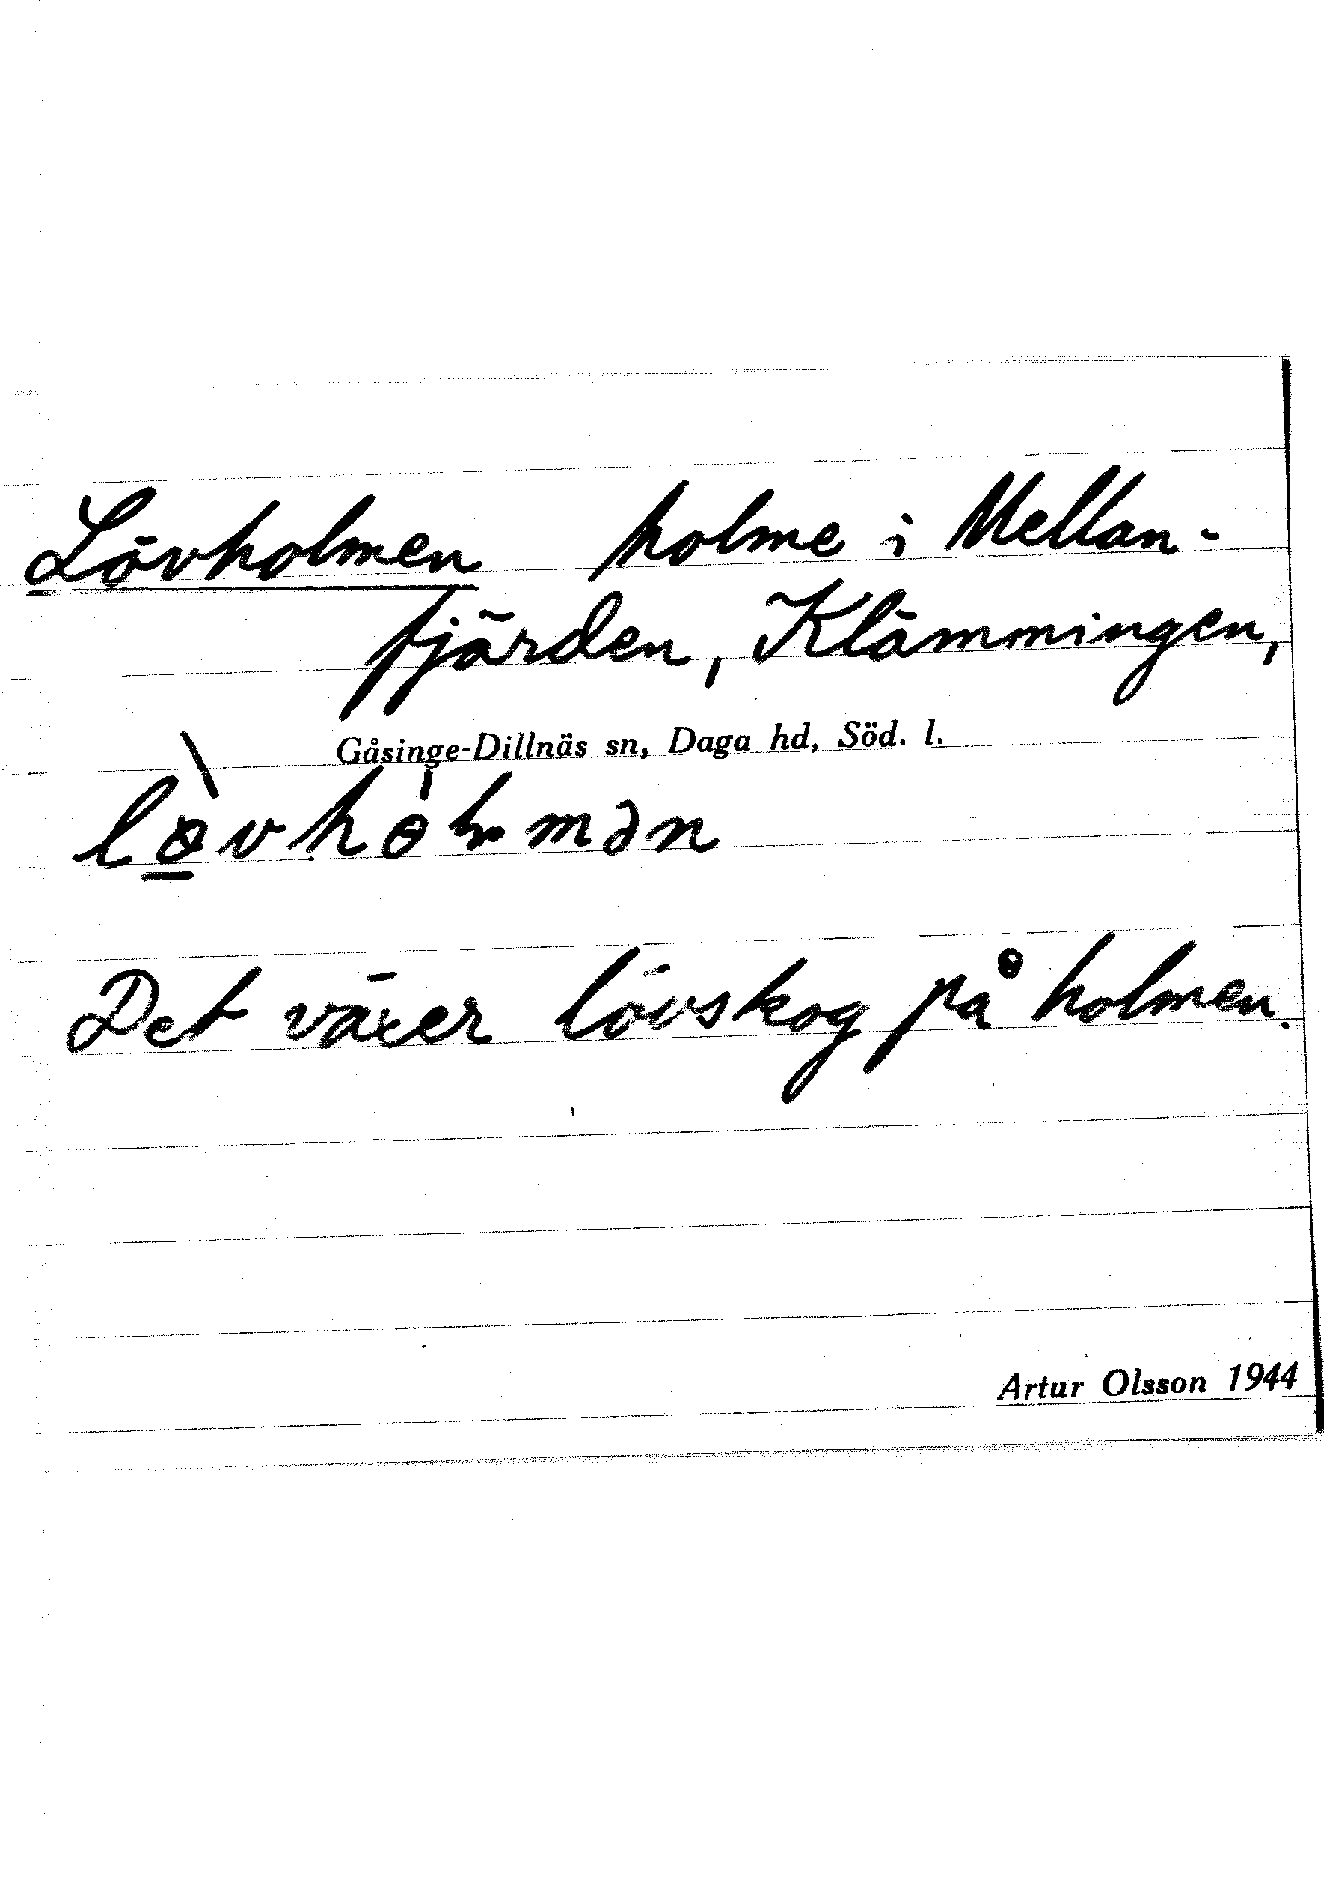 Lövholmen holme i Mellan-
fjärden, Klämmingen,
Gåsinge-Dillnäs sn, Daga hd, Söd. l.
Det växer lövskog på holmen.
Artur Olsson 1944